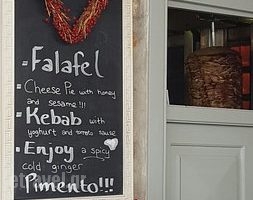 - Falafel
- Cheese Pie with honey
and sesame!!!
- Kebab with
yoghurt and tomato sause
- Enjoy a spicy
cold ginger
Pimento!!!